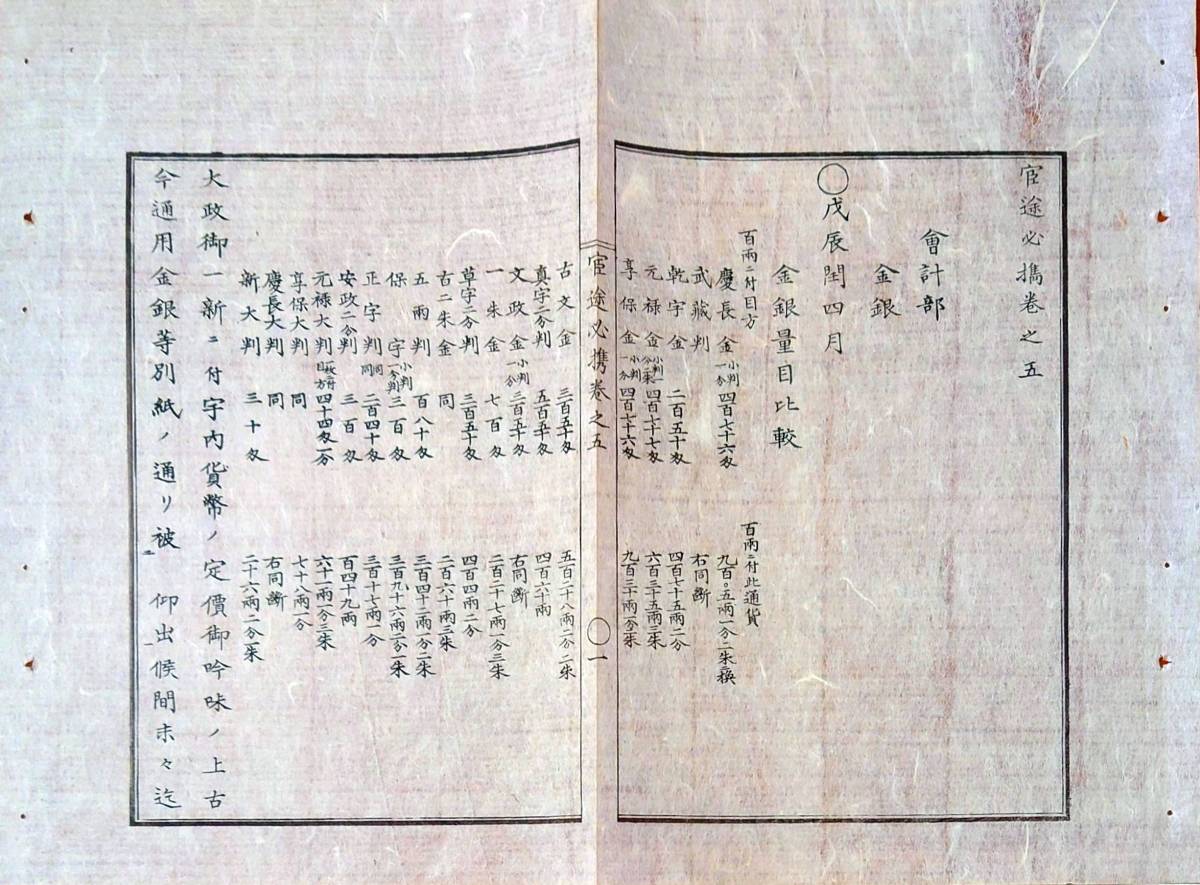 官途必携卷之五
會計部
金銀
〇戊辰閏四月
金銀量目比較
百兩ニ付目方 百兩ニ付此通貨
慶長金 小判 一分 四百七十六匁 九百〇五兩一分二朱ニ換
武藏判 右同斷
乾字金 二百五十匁 四百七十五兩二分
元禄金 小判 四百七十七匁 六百三十五兩三朱
享保金 小判 一分 四百七十六匁 九百三十兩一分三朱
官途必携卷之五 〇一
古文金 三百五十匁 五百二十八兩二分二朱
真字二分判 五百五十匁 四百六十兩
文政金 小判 一分 三百五十匁 右同斷
一朱金 七百匁 二百二十七兩一分三朱
草字二分判 三百五十匁 四百四兩二分
古二朱金 同 二百六十兩三朱
五兩判 百八十匁 三百四十二兩一分二朱
保字 小判 一分判 三百匁 三百九十六兩二分一朱
正字判 同 同 二百四十匁 三百十七兩一分
安政二分判 三百匁 百四十九兩
元禄大判 一枚ニ付目方 四十四匁一分 六十二兩一分三朱
享保大判 同 七十八兩一分
慶長大判 同 右同斷
新大判 三十匁 二十六兩二分一朱
大政御一新ニ付宇内貨幣ノ定價御吟味ノ上古
今通用金銀等別紙ノ通リ被二 仰出一候間末々迄